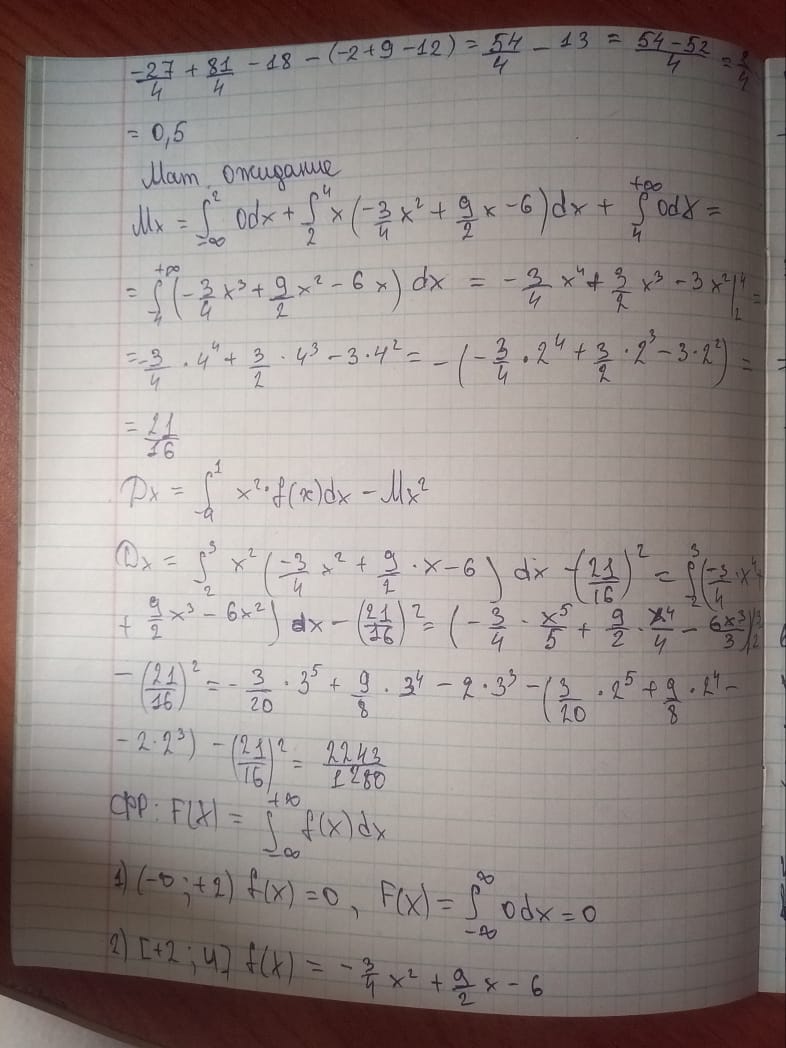 -27/4 + 81/4 - 18 - (-2+9-12) = 54/4 - 13 = 54-52/4 = 2/4
= 0,5
Мат. ожидание
Mx = ∫_{-∞}^{2} 0dx + ∫_{2}^{4} x(-3/4 x² + 9/2 x - 6)dx + ∫_{4}^{+∞} 0dx =
= ∫_{-4}^{+∞} (-3/4 x³ + 9/2 x² - 6x) dx = -3/4 x⁴ + 3/2 x³ - 3x² |_{2}^{4} =
= -3/4 · 4⁴ + 3/2 · 4³ - 3·4² = -(-3/4 · 2⁴ + 3/2 · 2³ - 3·2²) =
= 21/16
Dx = ∫_{-9}^{1} x²·f(x)dx - Mx²
Dx = ∫_{2}^{3} x² (-3/4 x² + 9/2 · x - 6) dx - (21/16)² = ∫_{2}^{3} (-3/4 · x⁴
+ 9/2 x³ - 6x²) dx - (21/16)² = (-3/4 · x⁵/5 + 9/2 · x⁴/4 - 6x³/3)|_{2}^{3}
- (21/16)² = -3/20 · 3⁵ + 9/8 · 3⁴ - 2·3³ - (3/20 · 2⁵ + 9/8 · 2⁴ -
- 2·2³) - (21/16)² = 2243/1280
СФР: F(X) = ∫_{-∞}^{+∞} f(x)dx
1) (-∞; +2) f(x) = 0, F(x) = ∫_{-∞}^{∞} 0dx = 0
2) [+2; 4] f(x) = -3/4 x² + 9/2 x - 6